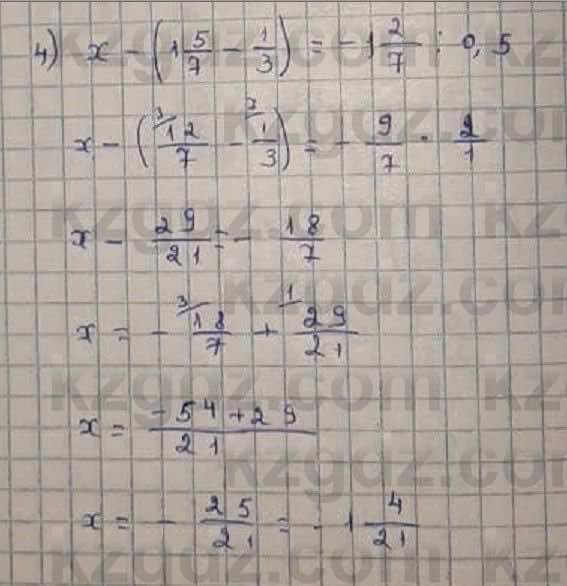 4) x - (1 5/7 - 1/3) = -1 2/7 : 0,5
x - (12/7 ³⁄ - 1/3 ⁷⁄) = - 9/7 · 2/1
x - 29/21 = - 18/7
x = - 18/7 ³⁄ + 29/21 ¹⁄
x = -54+29/21
x = - 25/21 = -1 4/21
kzgdz.com